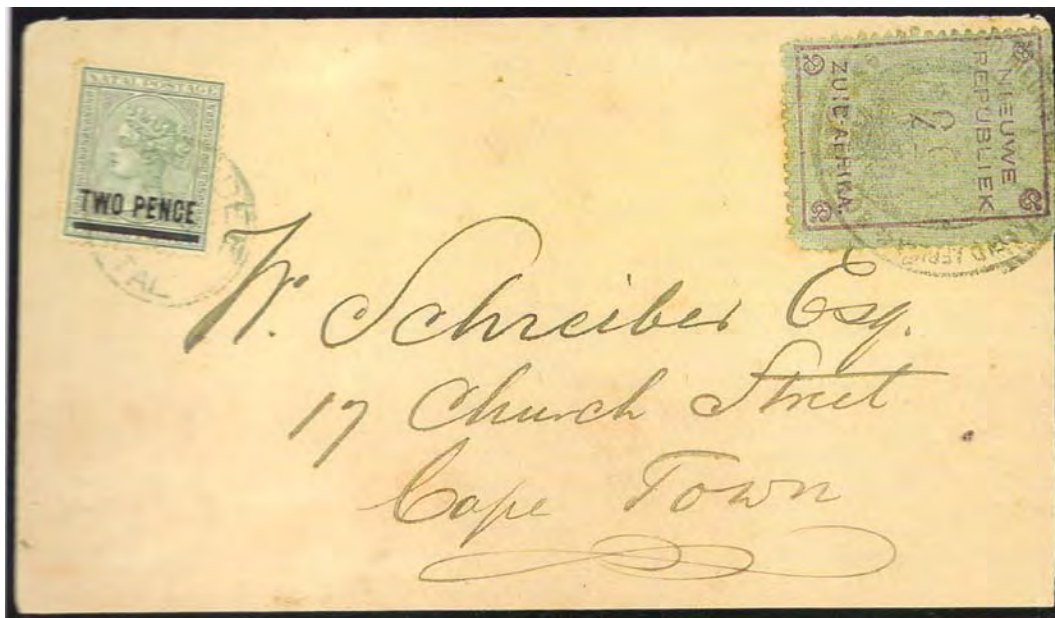 NATAL POSTAGE
TWO PENCE
TAL
NIEUWE
REPUBLIEK
ZUID-AFRIKA.
W. Schreiber Esq.
17 Church Street
Cape Town